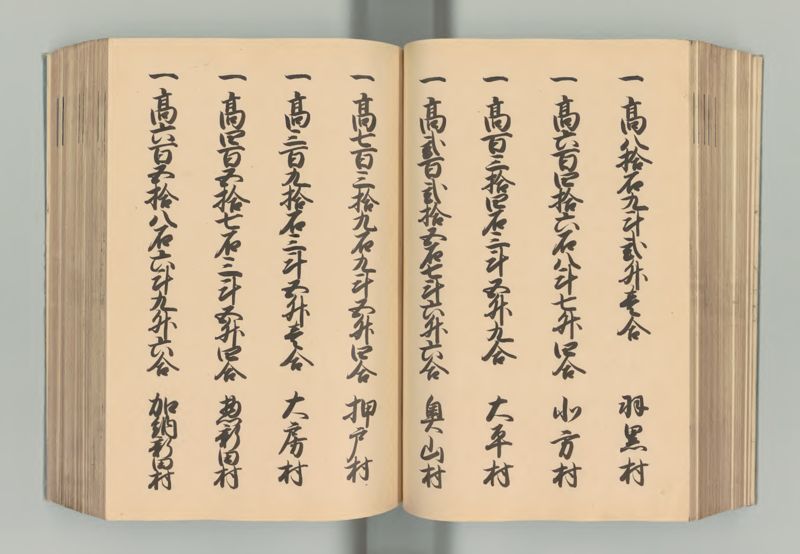 一 高八拾石九斗弐升壱合 羽黒村
一 高六百四拾六石八斗七升四合 小方村
一 高百三拾四石三斗五升九合 大平村
一 高弐百弐拾五石七斗六升六合 奥山村
一 高七百三拾九石九斗五升四合 押戸村
一 高三百九拾石三斗五升壱合 大房村
一 高四百五拾七石三斗五升四合 新田村
一 高六百五拾八石六斗九升六合 加納新田村